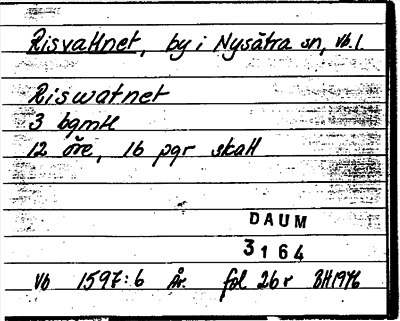 Risvattnet, by i Nysätra sn, Vb. l.
Riswatnet
3 bgmtl
12 öre, 16 pgr skatt
DAUM
3164
Vb 1597:6 År. fol 26r BH1976